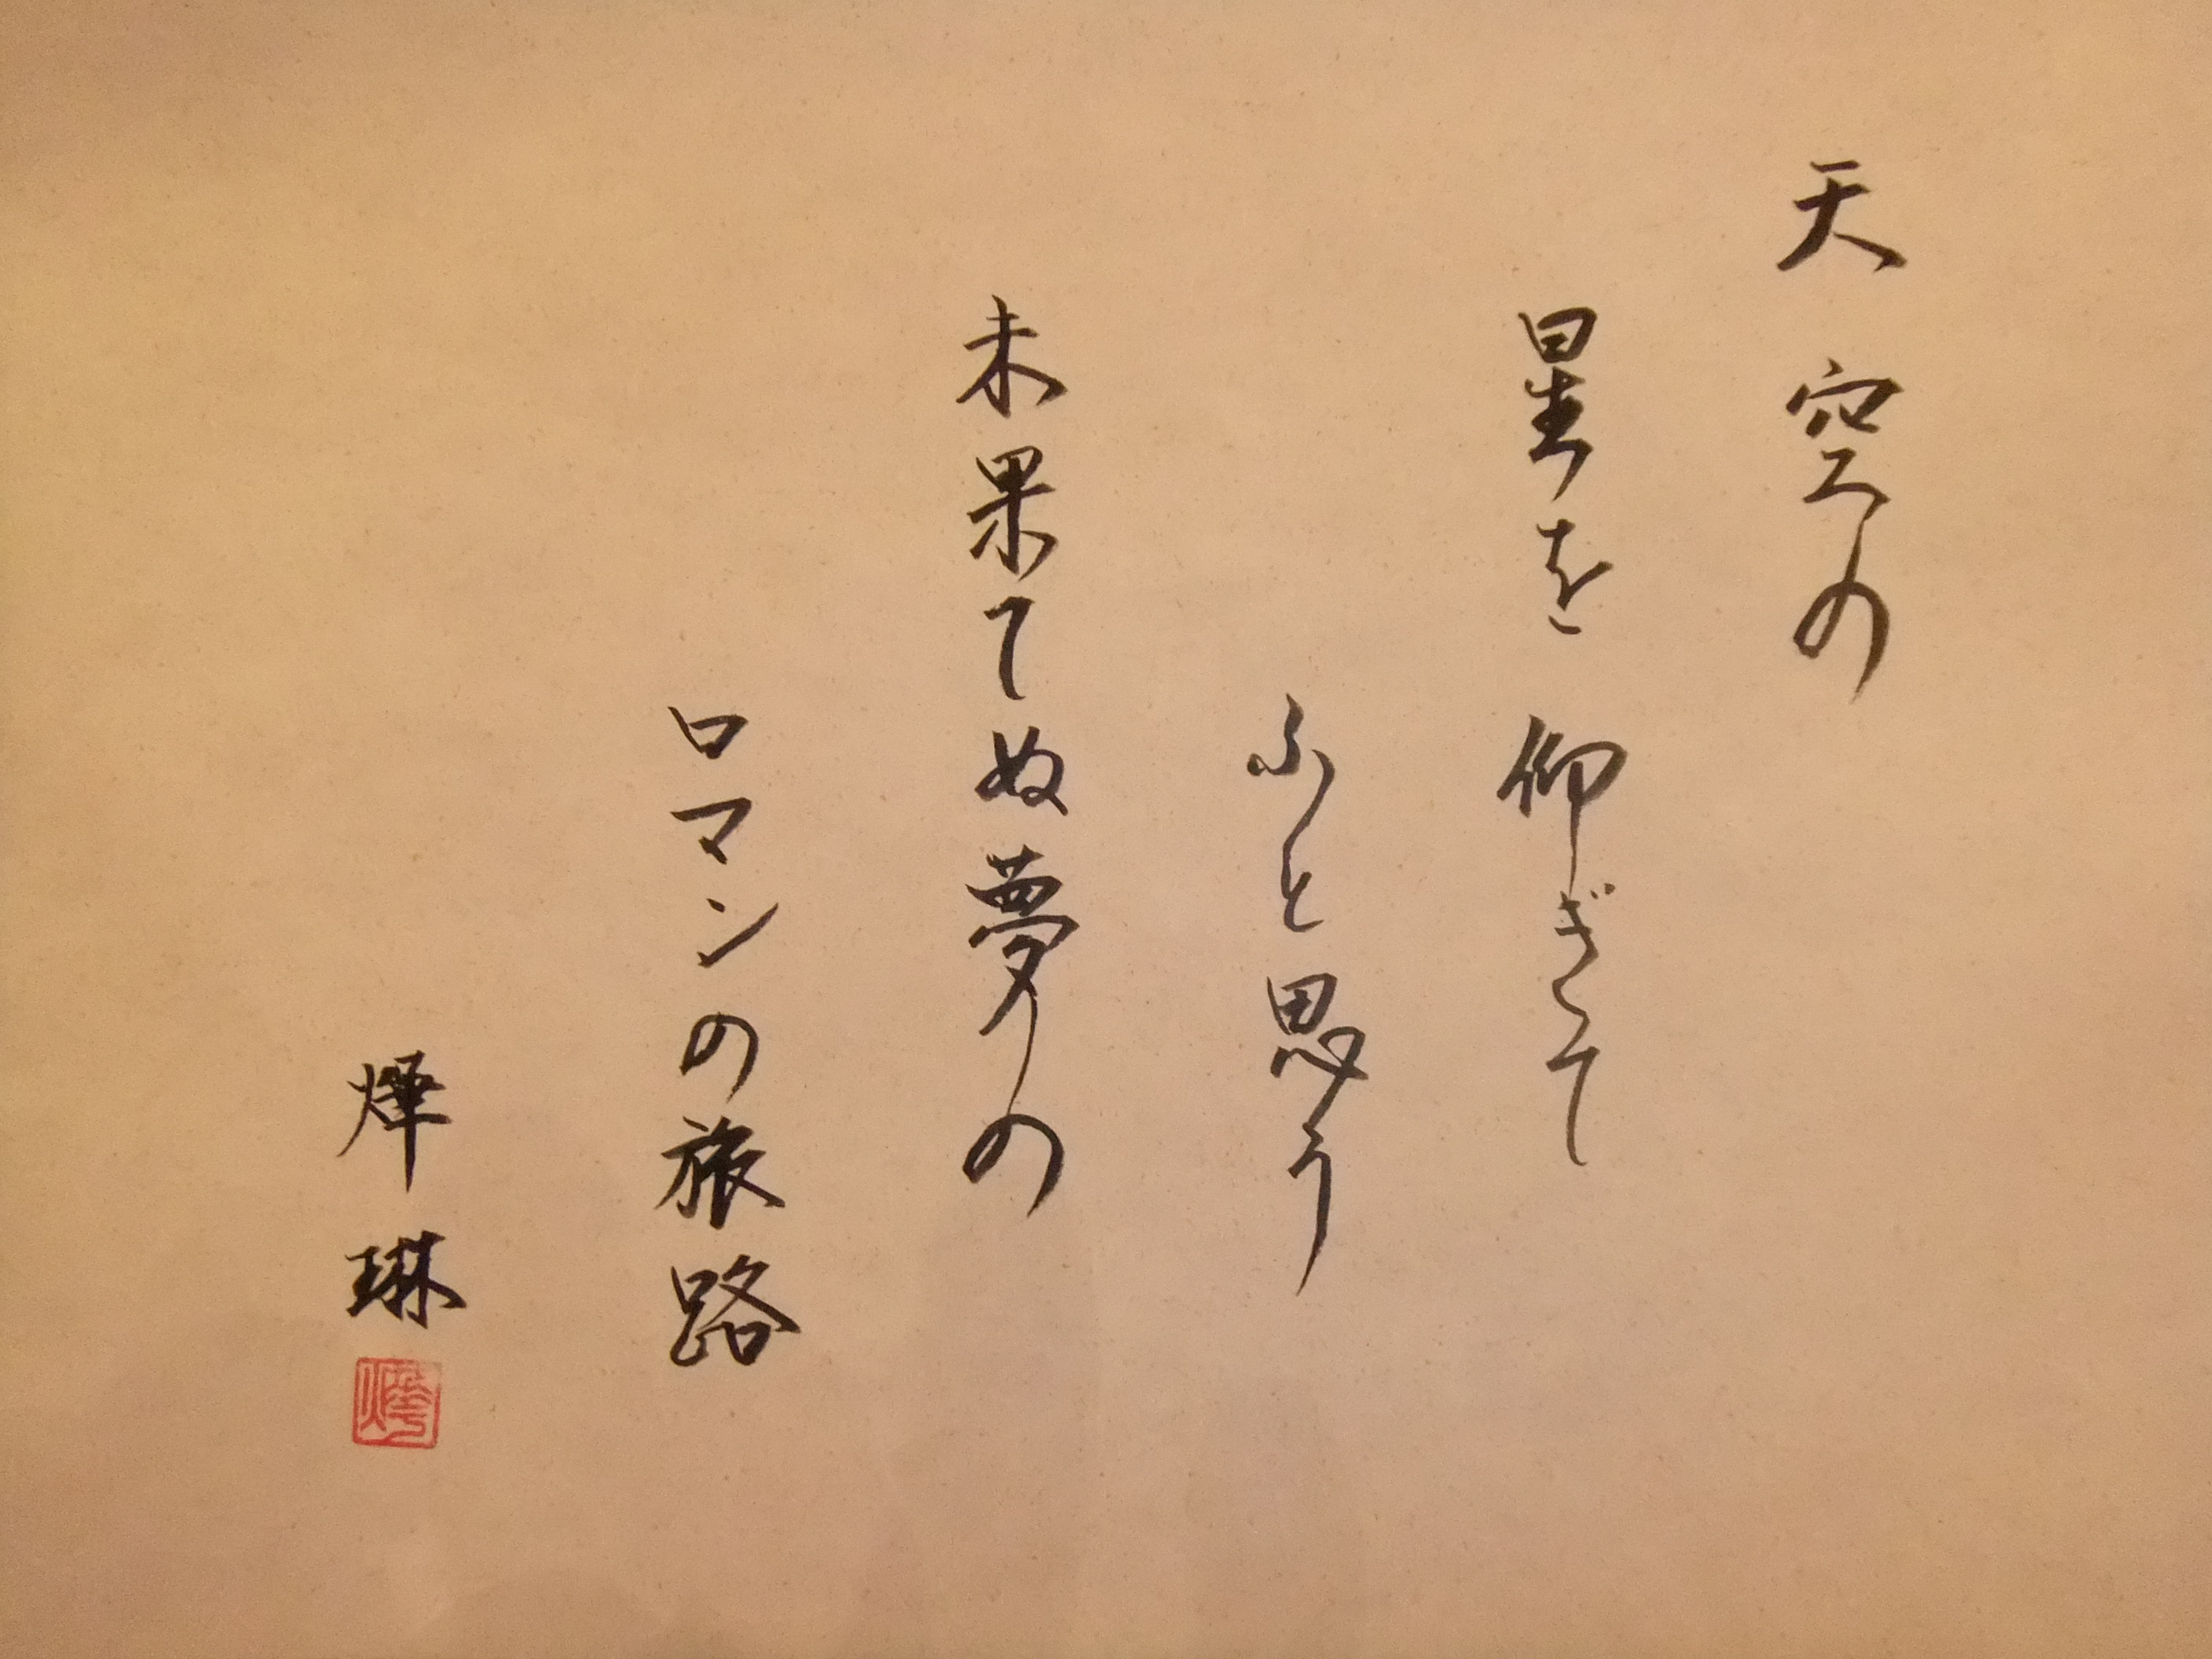 天空の
星を仰ぎて
ふと思う
未果てぬ夢の
ロマンの旅路
燁琳
燁